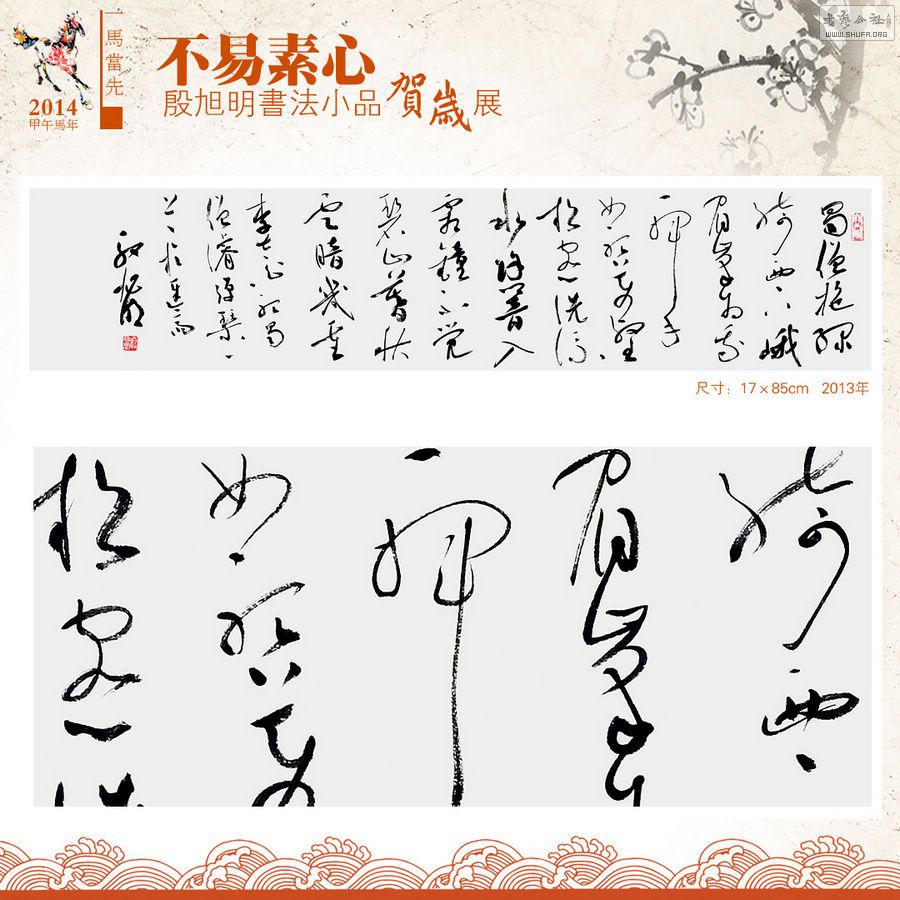 一馬當先
2014
甲午馬年
不易素心
殷旭明書法小品賀歲展
書法公社
WWW.SHUFA.ORG
蜀僧抱綠
綺西下峨
眉峰為我
一揮手
如聽萬壑
松客心洗流
水餘響入
霜鐘不覺
碧山暮秋
雲暗幾重
李白聽蜀
僧濬彈琴
旭明
尺寸：17×85cm 2013年
綺西下
眉峰為
一揮
如聽萬
松客心洗